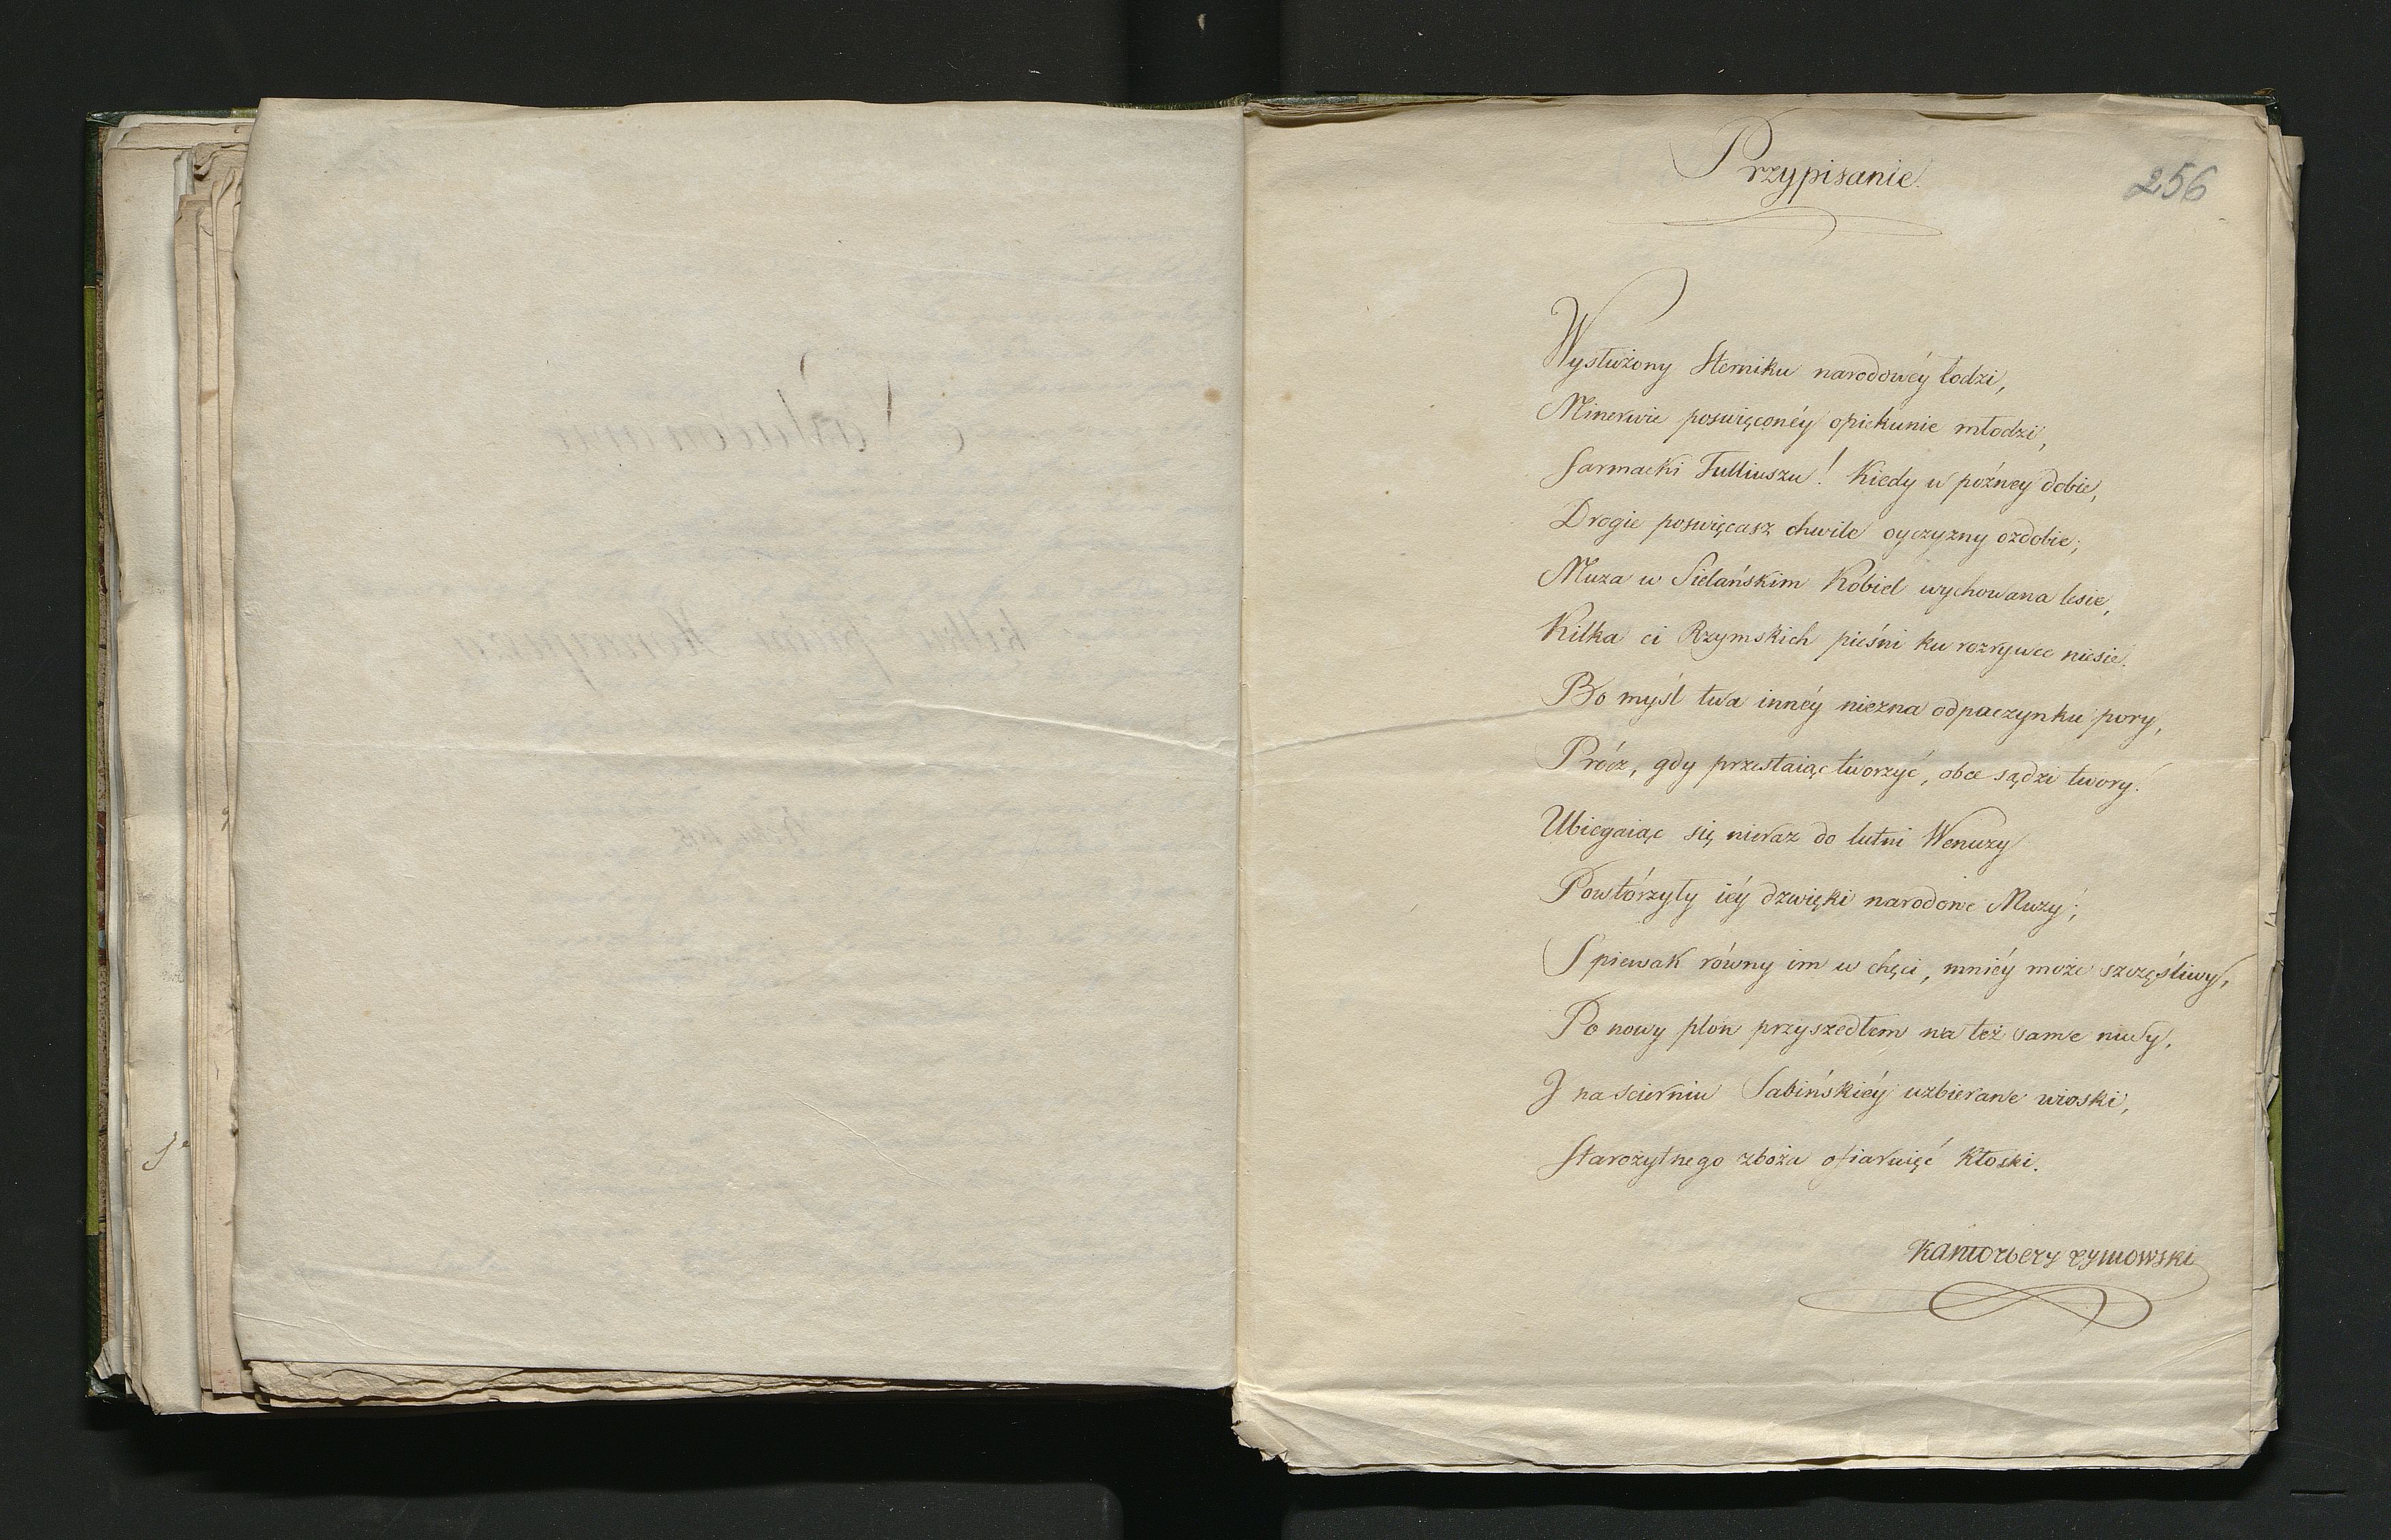 Przypisanie.
256
Wysłużony Sterniku narodowéy łodzi,
Minerwie poswięconéy opiekunie młodzi,
Sarmacki Tulliuszu! Kiedy w pózney dobie,
Drogie poswięcasz chwile oyczyzny ozdobie;
Muza w Sielańskim Kobiel wychowana lesie,
Kilka ci Rzymskich pieśni ku rozrywce niesie.
Bo myśl twa innéy niezna odpaczynku pory,
Prócz, gdy przestaiąc tworzyć, obce sądzi twory.
Ubiegaiąc się nieraz do lutni Wenuzy
Powtórzyły iéy dzwięki narodowe Muzy;
Spiewak równy im w chęci, mniéy może szczęśliwy,
Po nowy plon przyszedłem na też same niwy,
I na scierniu Sabińskiéy uzbierane wioski,
Starożytnego zboża ofiaruięć kłoski.
Kantorbery Tymowski